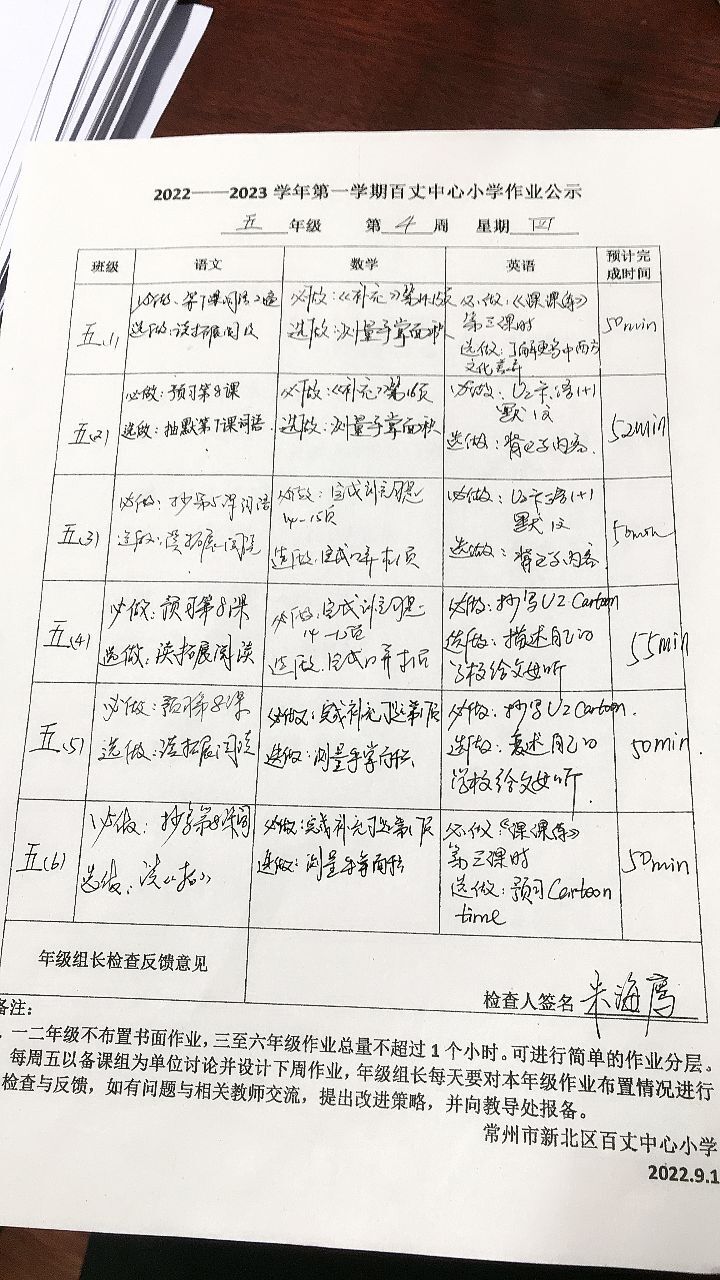 2022——2023 学年第一学期百丈中心小学作业公示
五 年级 第 4 周 星期 四
班级 语文 数学 英语 预计完成时间
五(1)
选做:读拓展阅读
必做:《补充》第14-15页
选做:测量手掌面积
必做:《课课练》
第三课时
选做:了解更多中西方
文化差异
50min
五(2)
必做:预习第8课
选做:抽默第7课词语
必做:《补充》第16页
选做:测量手掌面积
必做:U2
默
选做:背 内容
52min
五(3)
必做:抄第 课词语
选做:读拓展阅读
必做:完成补充习题
14-15页
选做:完成口算 页
必做:U2
默
选做:背 内容
50min
五(4)
必做:预习第8课
选做:读拓展阅读
必做:完成补充习题
14-15页
选做:完成口算 页
必做:抄写U2 Cartoon
选做:描述自己的
学校给父母听
55min
五(5)
必做:预习第8课
选做:读拓展阅读
必做:完成补充习题第 页
选做:测量手掌面积
必做:抄写U2 Cartoon.
选做:复述自己的
学校给父母听.
50min.
五(6)
必做:抄写第8课词
选做:读
必做:完成补充习题第 页
选做:测量手掌面积
必做:《课课练》
第三课时
选做:预习Cartoon
time
50min
年级组长检查反馈意见
检查人签名 朱海
备注:
一二年级不布置书面作业,三至六年级作业总量不超过 1 个小时。可进行简单的作业分层。
每周五以备课组为单位讨论并设计下周作业,年级组长每天要对本年级作业布置情况进行
检查与反馈,如有问题与相关教师交流,提出改进策略,并向教导处报备。
常州市新北区百丈中心小学
2022.9.1